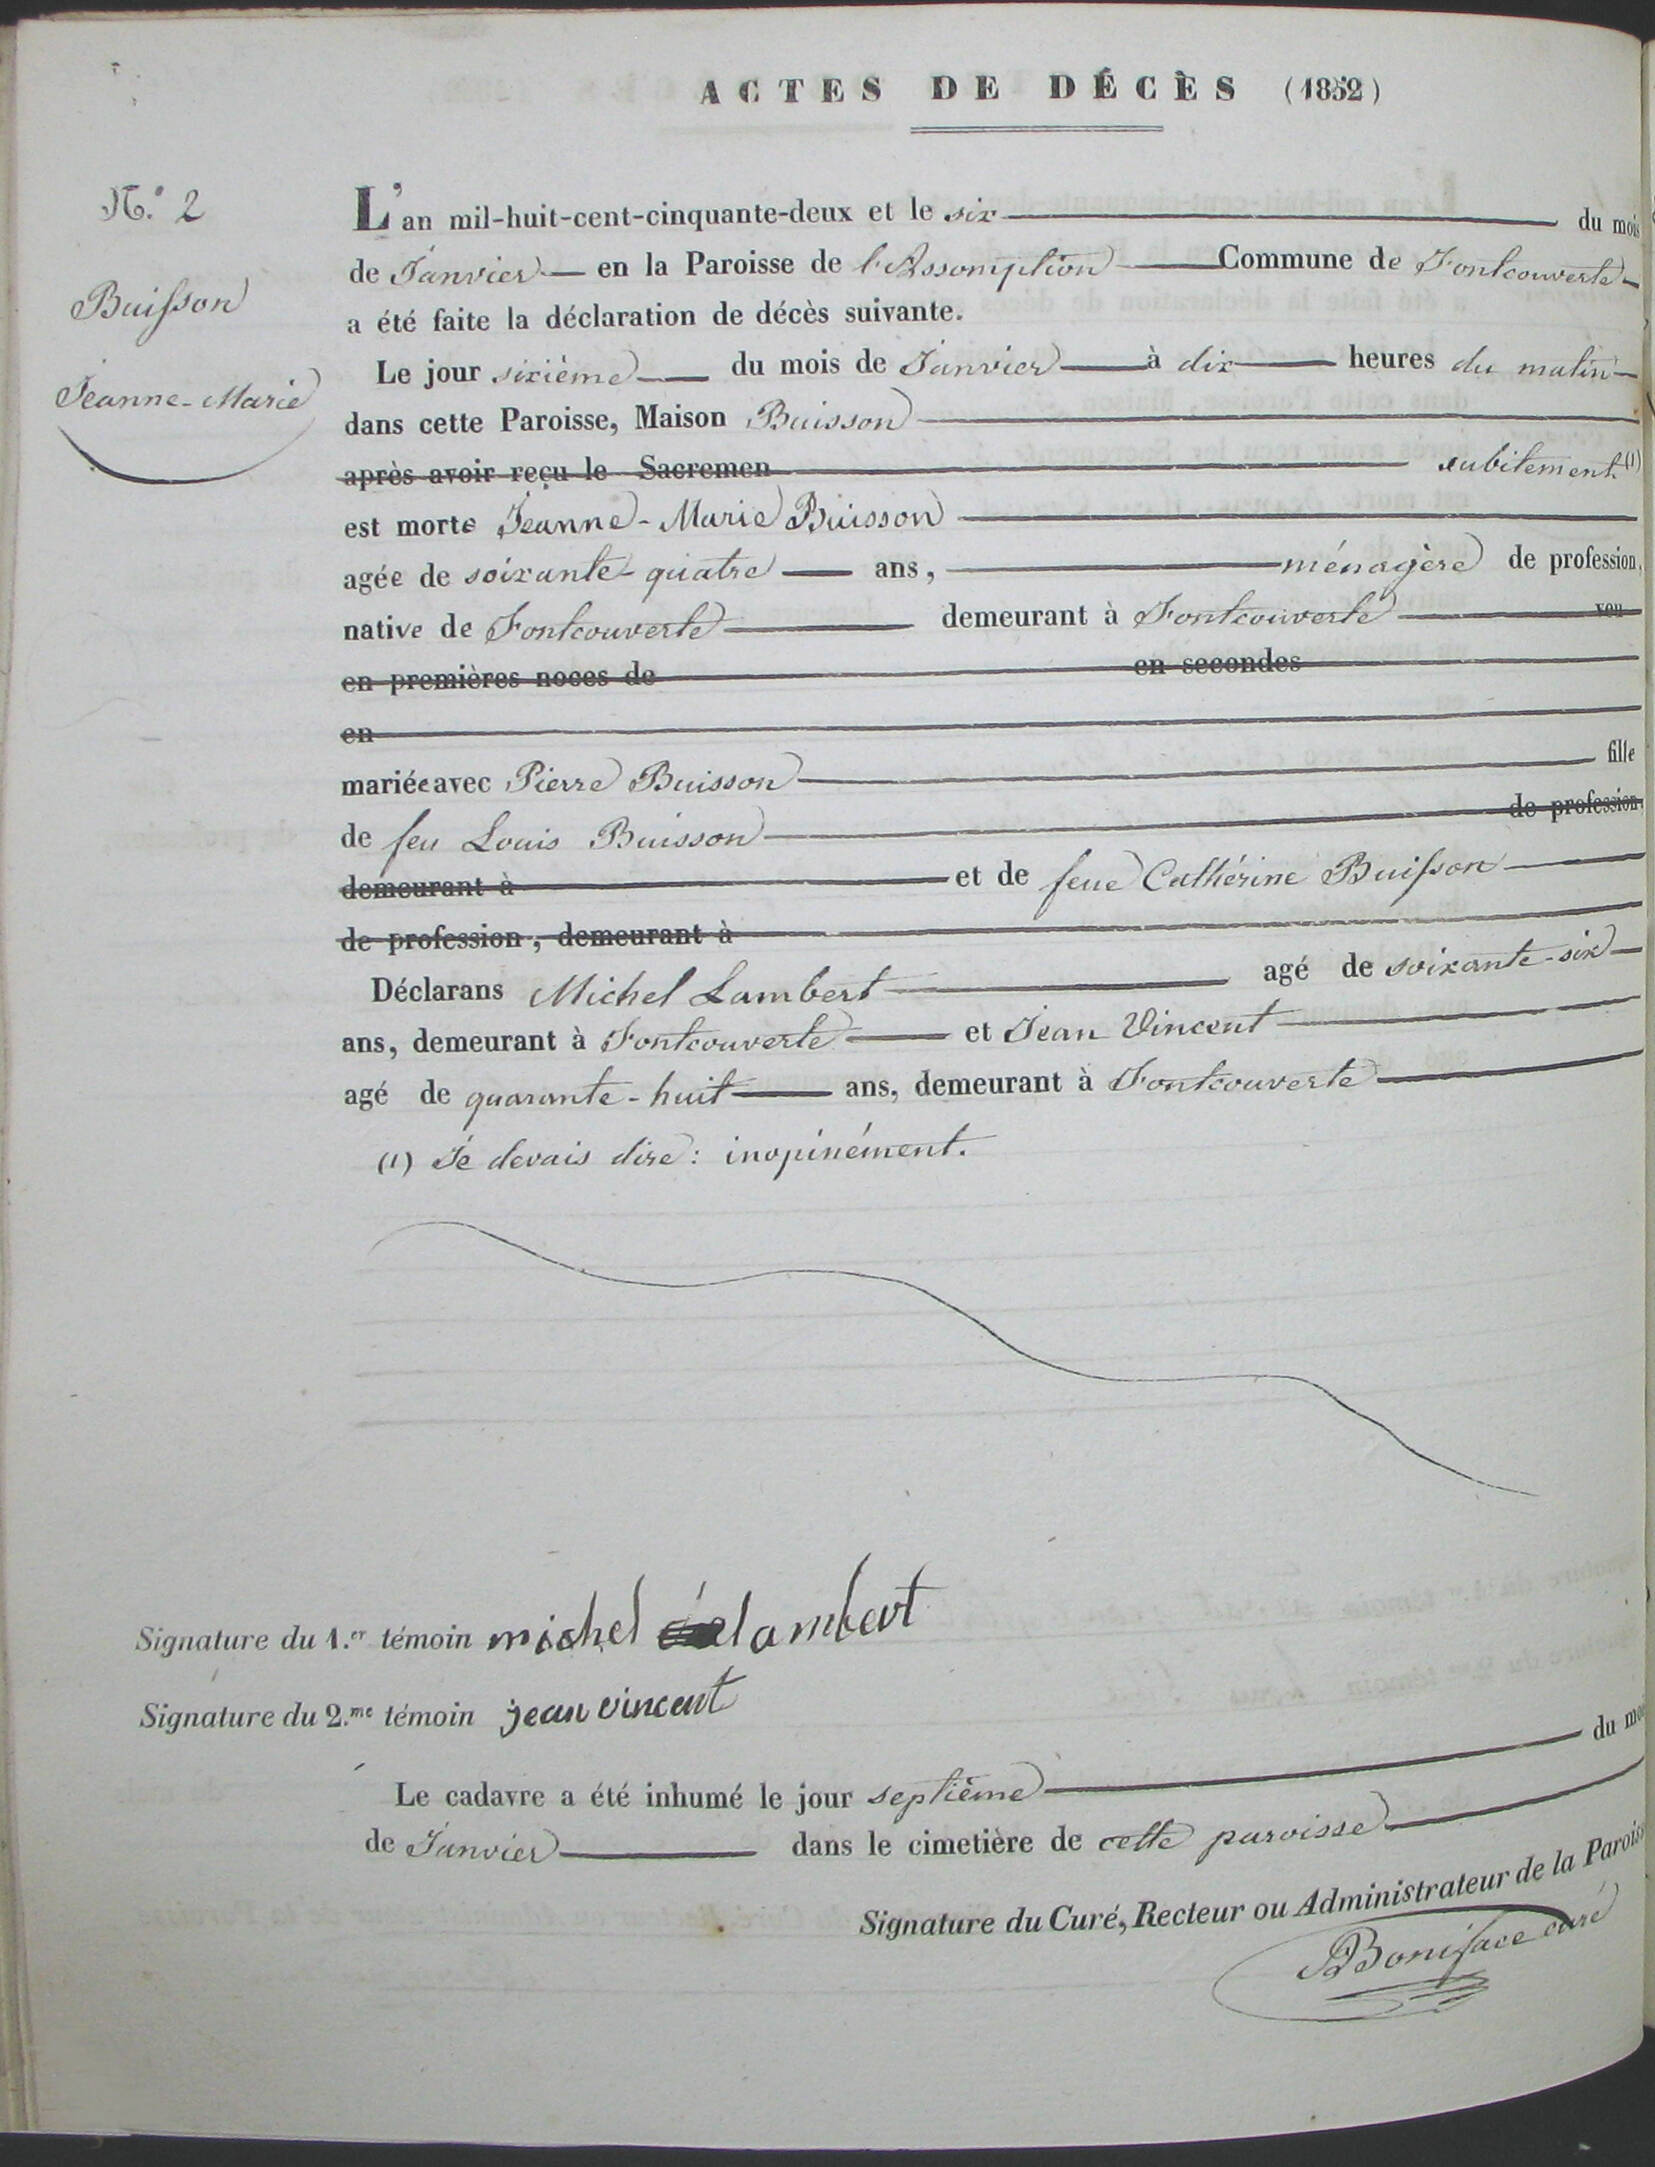 ACTES DE DÉCÈS (1852)
N.° 2
Buisson
Jeanne-Marie
L'an mil-huit-cent-cinquante-deux et le six du mois
de Janvier en la Paroisse de l'Assomption Commune de Fontcouverte
a été faite la déclaration de décès suivante.
Le jour sixième du mois de Janvier à dix heures du matin
dans cette Paroisse, Maison Buisson
après avoir reçu le Sacremen subitement (1)
est morte Jeanne-Marie Buisson
agée de soixante-quatre ans, ménagère de profession,
native de Fontcouverte demeurant à Fontcouverte veu
en premières noces de en secondes
en
mariée avec Pierre Buisson fille
de feu Louis Buisson de profession,
demeurant à et de feue Cathérine Buisson
de profession, demeurant à
Déclarans Michel Lambert agé de soixante-six
ans, demeurant à Fontcouverte et Jean Vincent
agé de quarante-huit ans, demeurant à Fontcouverte
(1) Je devais dire: inopinément.
Signature du 1.er témoin michel lambert
Signature du 2.me témoin jean vincent
Le cadavre a été inhumé le jour septième du moi
de Janvier dans le cimetière de cette paroisse
Signature du Curé, Recteur ou Administrateur de la Paroiss
Boniface curé